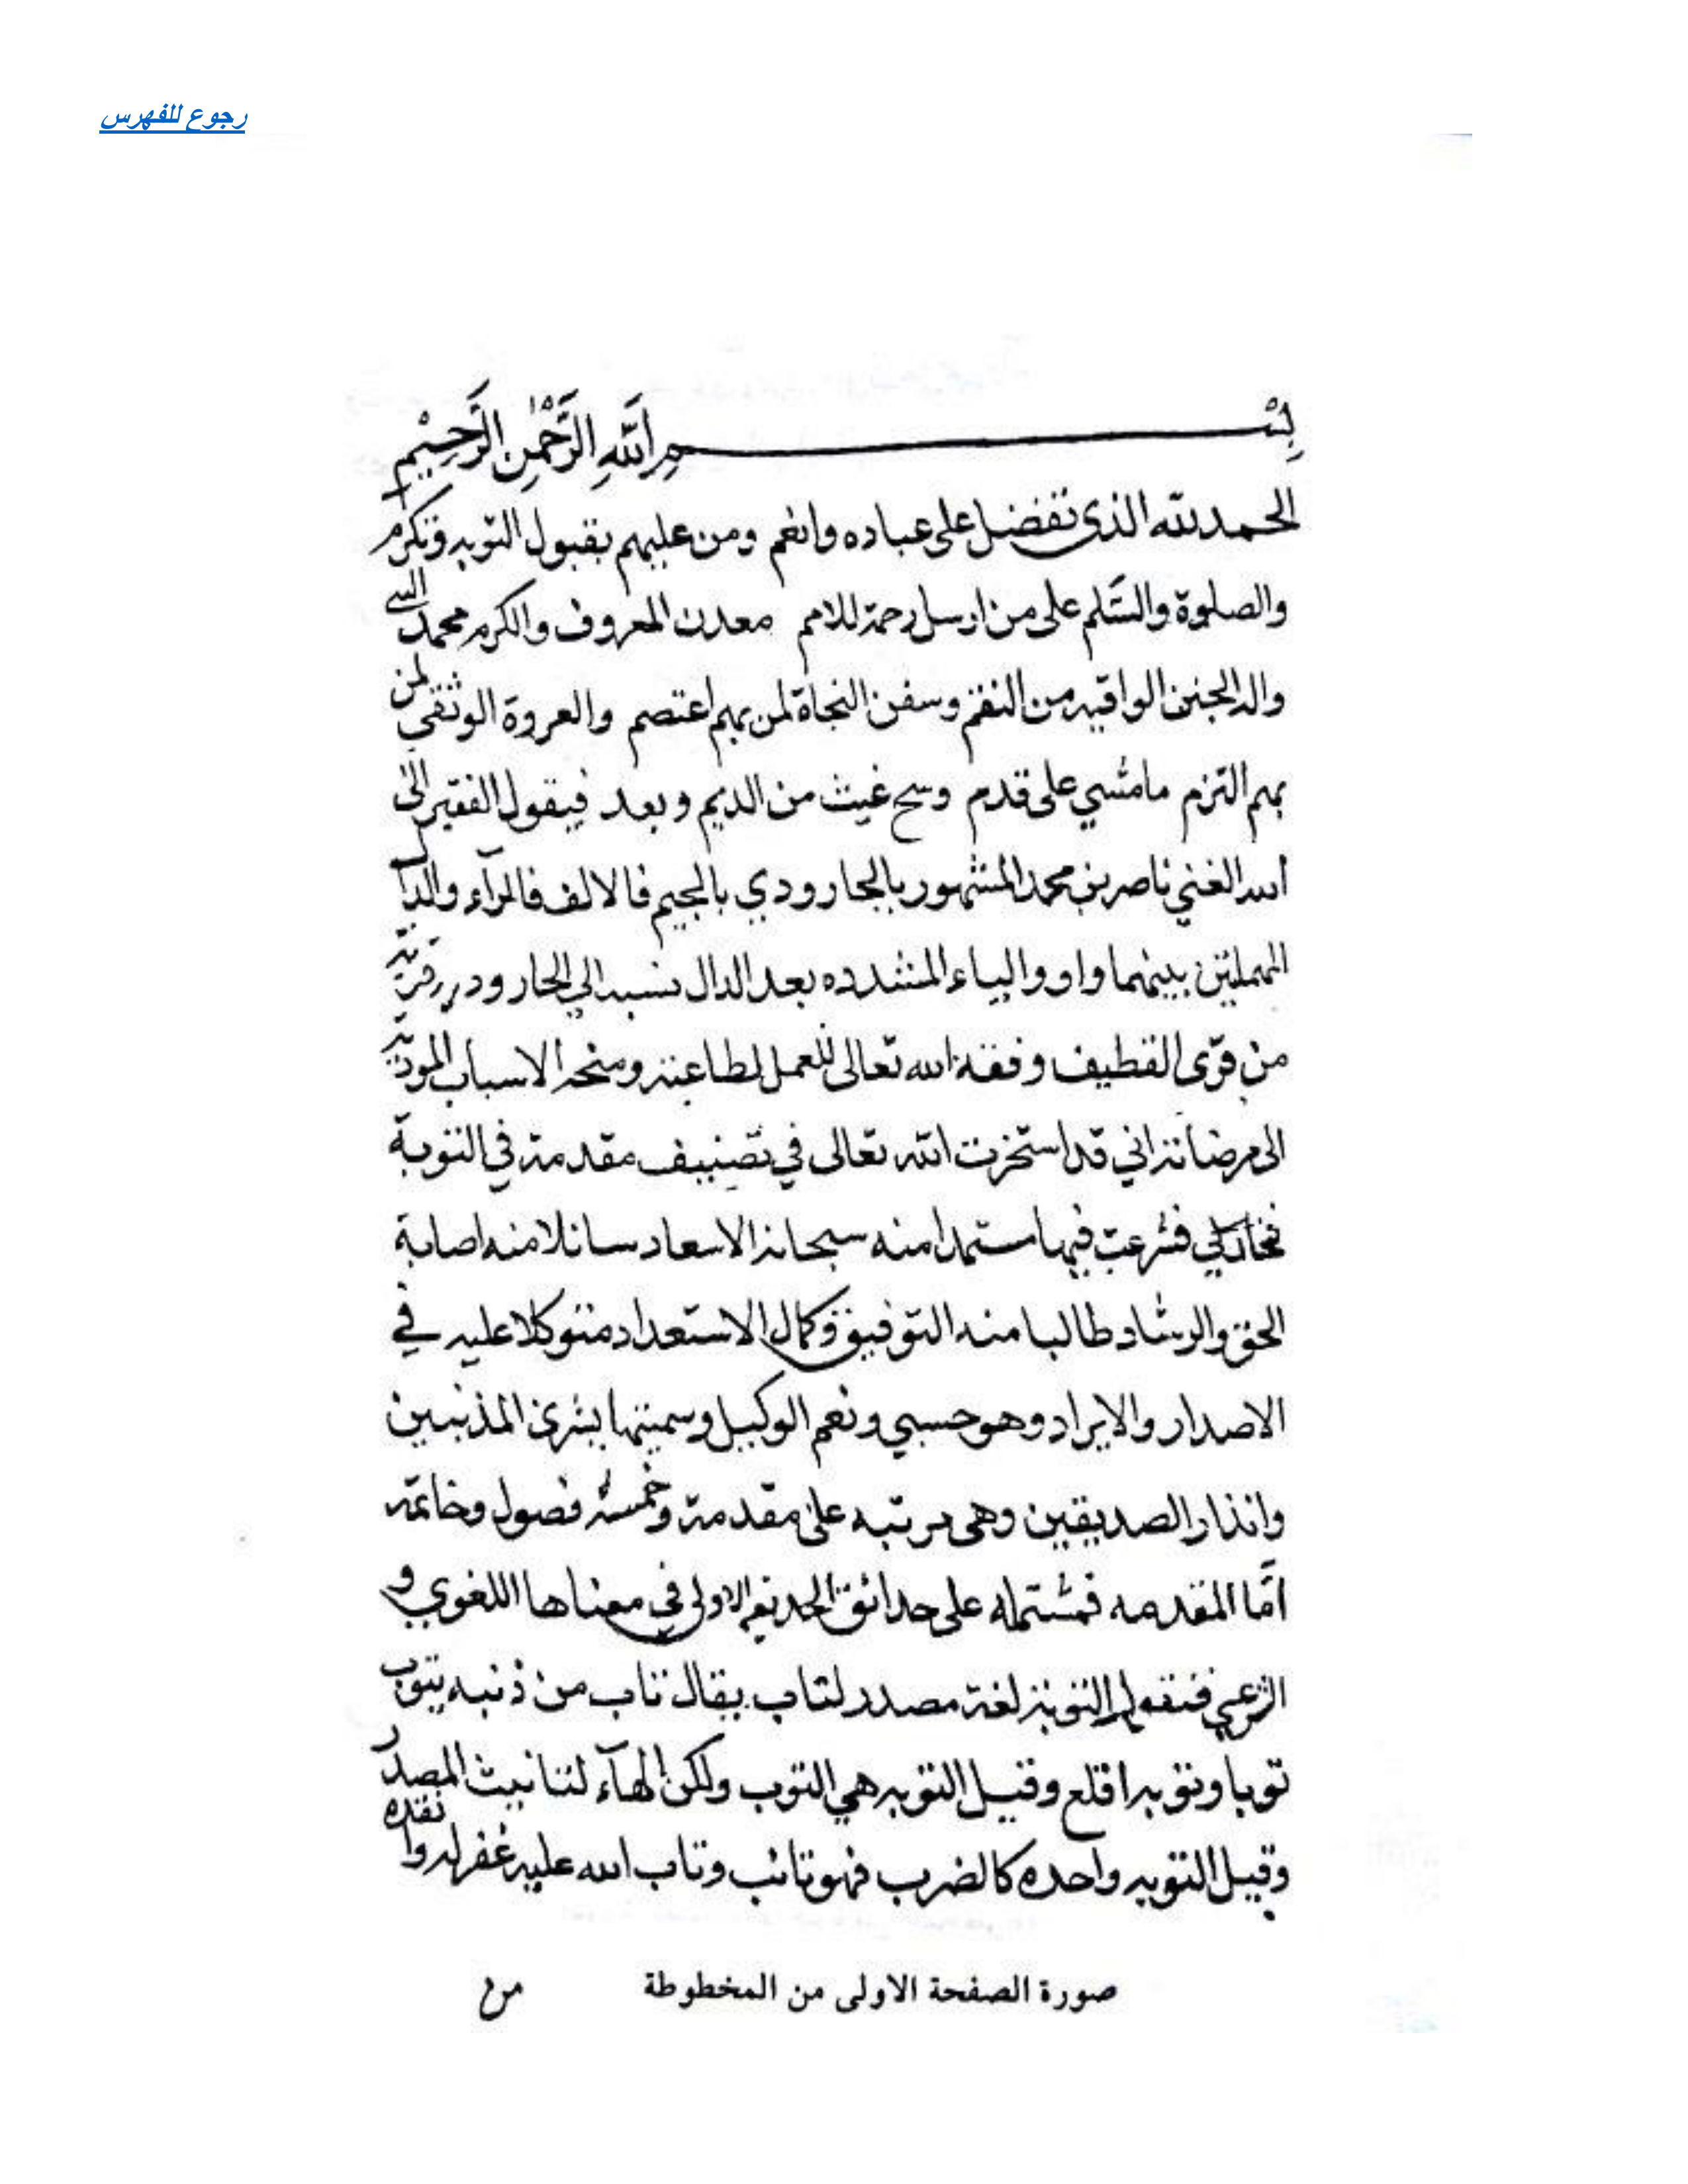 رجوع للفهرس
بسم الله الرَّحْمٰنِ الرَّحِيْمِ
الحمد لله الذي تفضل على عباده وانعم ومن عليهم بقبول التوبه وتكرم
والصلوة والسَّلم على من ارسل رحمة للامم معدن المعروف والكرم محمد
واله الجنن الواقيه من النقم وسفن النجاة لمن بهم اعتصم والعروة الوثقى لمن
بهم التزم ما مشي على قدم وسح غيث من الديم وبعد فيقول الفقير الى
الله الغني ناصر بن محمد المشهور بالجارودي بالجيم فالالف فالرآء والدال
المهملتين بينهما واو والياء المشدده بعد الدال نسبه الي الجارودر قرية
من قرى القطيف وفقه الله تعالى للعمل لطاعته ومنحه الاسباب المودية
الى مرضاته اني قد استخرت الله تعالى في تصنيف مقدمة في التوبة
فخار لي فشرعت فيها مستمدا منه سبحانه الاسعاد سائلا منه اصابة
الحق والرشاد طالبا منه التوفيق وكمال الاستعداد متوكلا عليه في
الاصدار والايراد وهو حسبي ونعم الوكيل وسميتها بشرى المذنبين
وانذار الصديقين وهي مرتبه على مقدمة وخمسة فصول وخاتمة
امَّا المقدمه فمشتمله على حدائق الحديقة الاولى في معناها اللغوي و
الشرعي فنقول التوبة لغة مصدر لتاب يقال تاب من ذنبه يتوب
توبا وتوبه اقلع وقيل التوبه هي التوب ولكن الهآء لتانيث المصدر
وقيل التوبه واحده كالضرب فهو تائب وتاب الله عليه غفر له وانقده
من
صورة الصفحة الاولى من المخطوطة